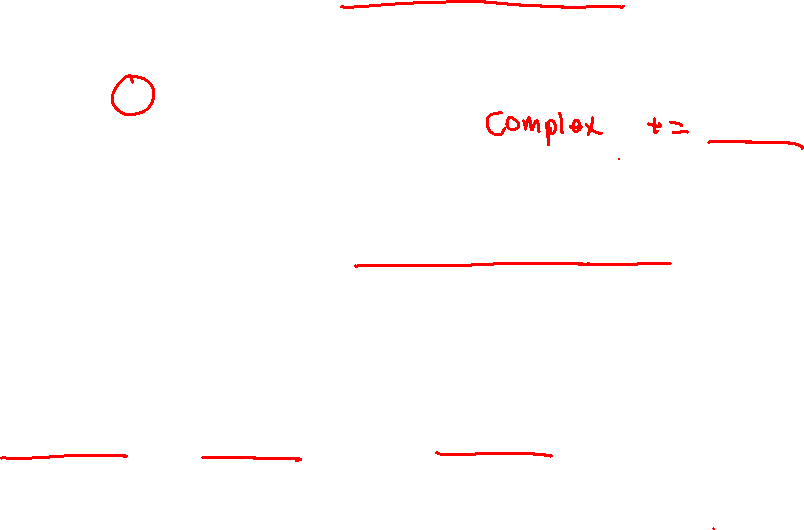 Complex += ____